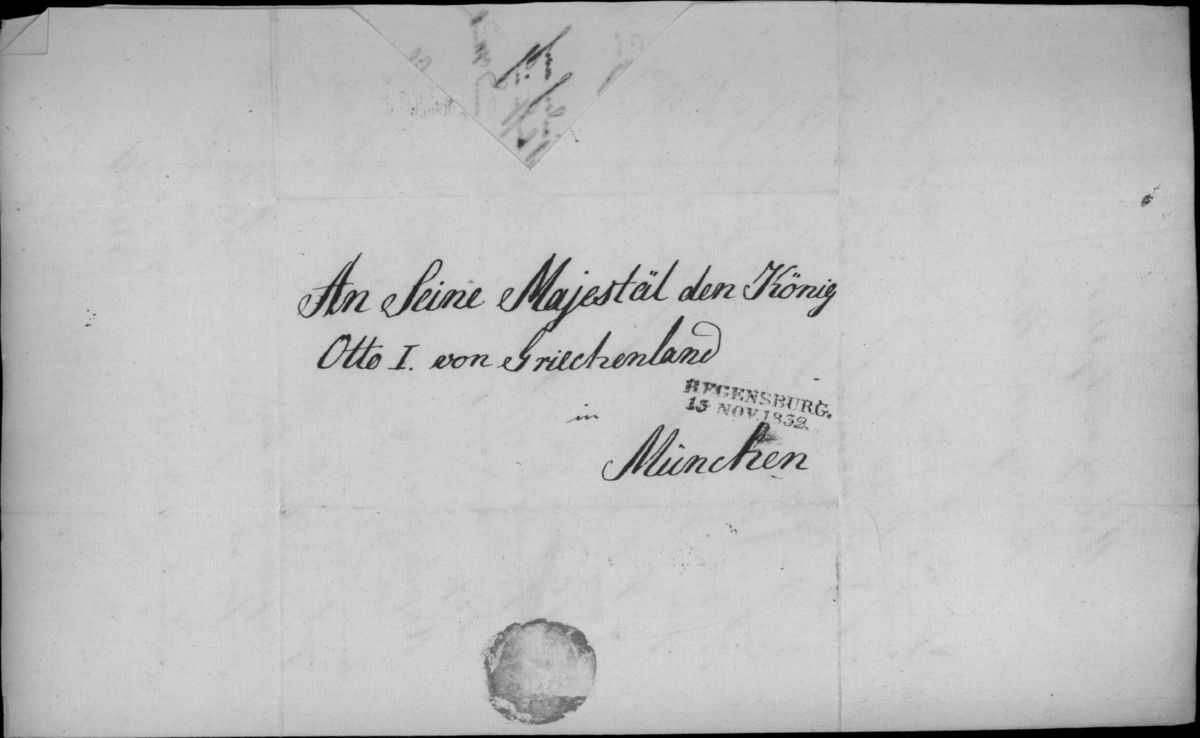 An Seine Majestät den König
Otto I. von Griechenland
REGENSBURG.
15 NOV. 1832.
in
München